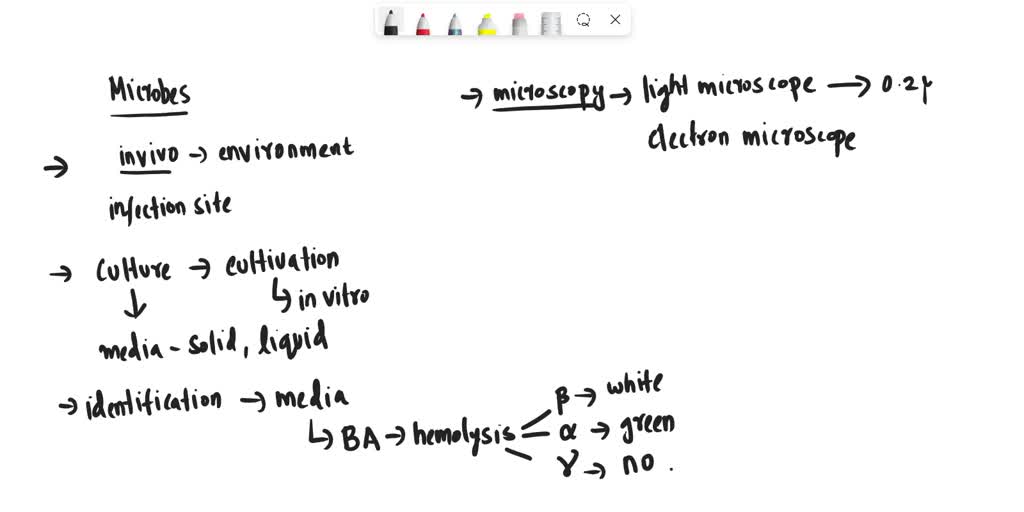 Microbes
→ invivo → environment
infection site
→ Culture → cultivation
↓ ↳ in vitro
media - solid, liquid
→ identification → media
↳ BA → hemolysis
β → white
α → green
γ → no.
→ microscopy → light microscope → 0.2μ
electron microscope